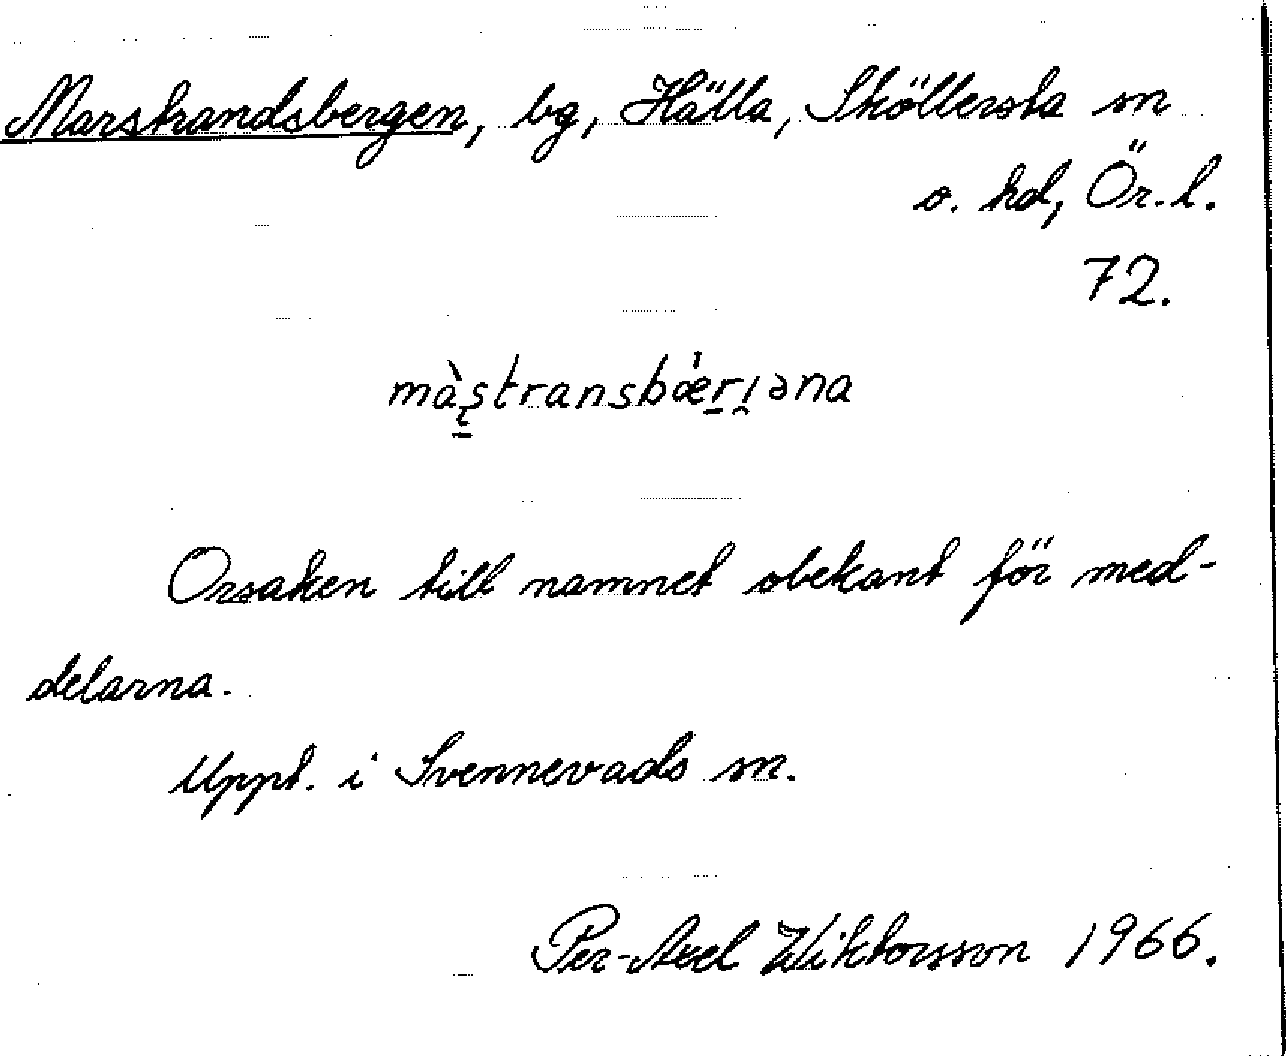 Marstrandsbergen, bg, Hälla, Sköllersta sn
o. hd, Ör. l.
72.
màs̨transbǽri̯əna
Orsaken till namnet obekant för med-
delarna.
Uppt. i Svennevads sn.
Per-Axel Wiktorsson 1966.